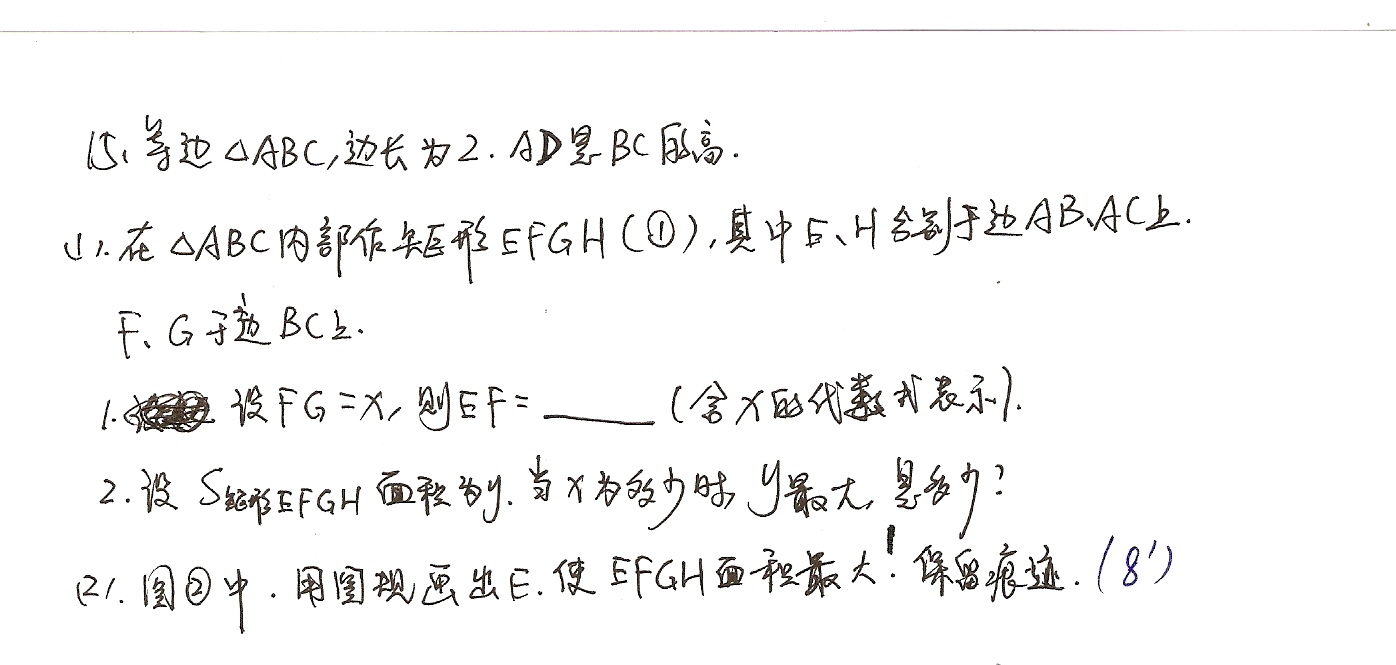 15、等边△ABC,边长为2.AD是BC的高.
(1).在△ABC内部作矩形EFGH(①),其中E、H分别于边AB、AC上.
F、G于边BC上.
1. 设FG=x,则EF=____(含x的代数式表示).
2.设S矩形EFGH面积为y.当x为多少时,y最大,是多少?
(2).图②中.用圆规画出E.使EFGH面积最大!保留痕迹.(8')